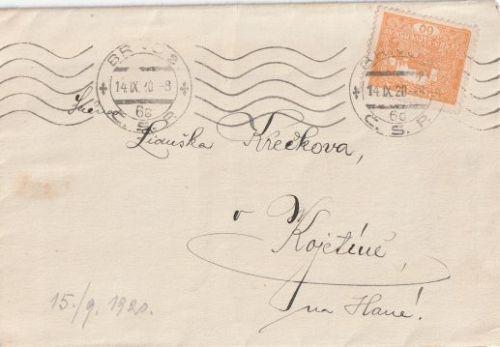 14 IX 20 -8
6c
Č.S.R
60
14 IX 20 -8
6c
Č.S.R
Slečna
Liduška Křečkova,
v Kojetíně,
na Hané!
15./9. 1920.